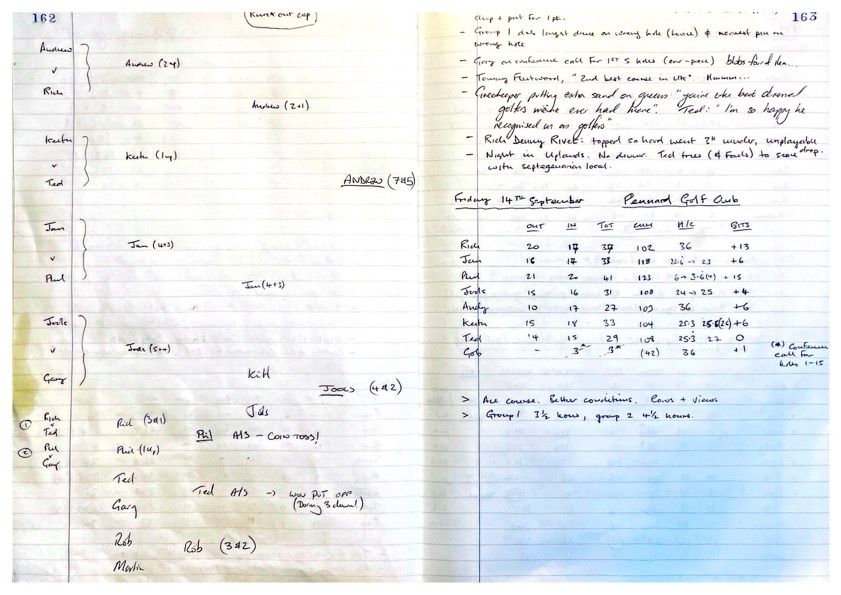 162
Knockout cup
Andrew
v
Rich
Andrew (2up)
Andrew (2+1)
Keith
v
Ted
Keith (1up)
ANDREW (7&5)
Jan
v
Phil
Jan (4+3)
Jan (4+3)
Jools
v
Gary
Jools
Keith
JOOLS (4&2)
Jools
① Rich
v
Ted
② Phil
v
Gary
Rich (3&1)
Phil (1up)
Phil A/S – COIN TOSS!
Ted
Gary
Ted A/S → WON PUT OFF
(Dormy 3 down!)
Rob
Martin
Rob (3&2)
163
chip + putt for 1pt.
- Group 1 did longest drive on wrong hole (twice) & nearest pin on
wrong hole
- Gary on conference call for 1st 5 holes (ear-piece) blobs
- Tommy Fleetwood, "2nd best course in UK". Hmmm...
- Greenkeeper putting extra sand on greens "you're the best dressed
golfers we've ever had here". Ted: "I'm so happy he
recognised us as golfers"
- Rich Denny Rivet: topped so hard went 2" under, unplayable
- Night in Uplands. No dinner. Ted tries (& fails) to score drop.
with septegenarian local.
Friday 14TH September Pennard Golf Club
OUT IN TOT CUM H/C BITS
Rich 20 17 37 102 36 +13
Jan 16 17 33 118 22.6 → 23 +6
Phil 21 20 41 123 +15
Jools 15 16 31 108 24 → 25 +4
Andy 10 17 27 103 36 +6
Keith 15 18 33 104 25.3 25.5(26) +6
Ted 14 15 29 108 25.3 27 0
Gob - 3* 3* (42) 36 +1
(*) Conference
call for
holes 1-15
> Ace course. Better conditions. Cows + views
> Group 1 3½ hours, group 2 4½ hours.